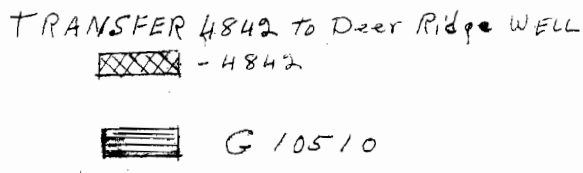 TRANSFER 4842 to Deer Ridge WELL
- 4842
G 10510